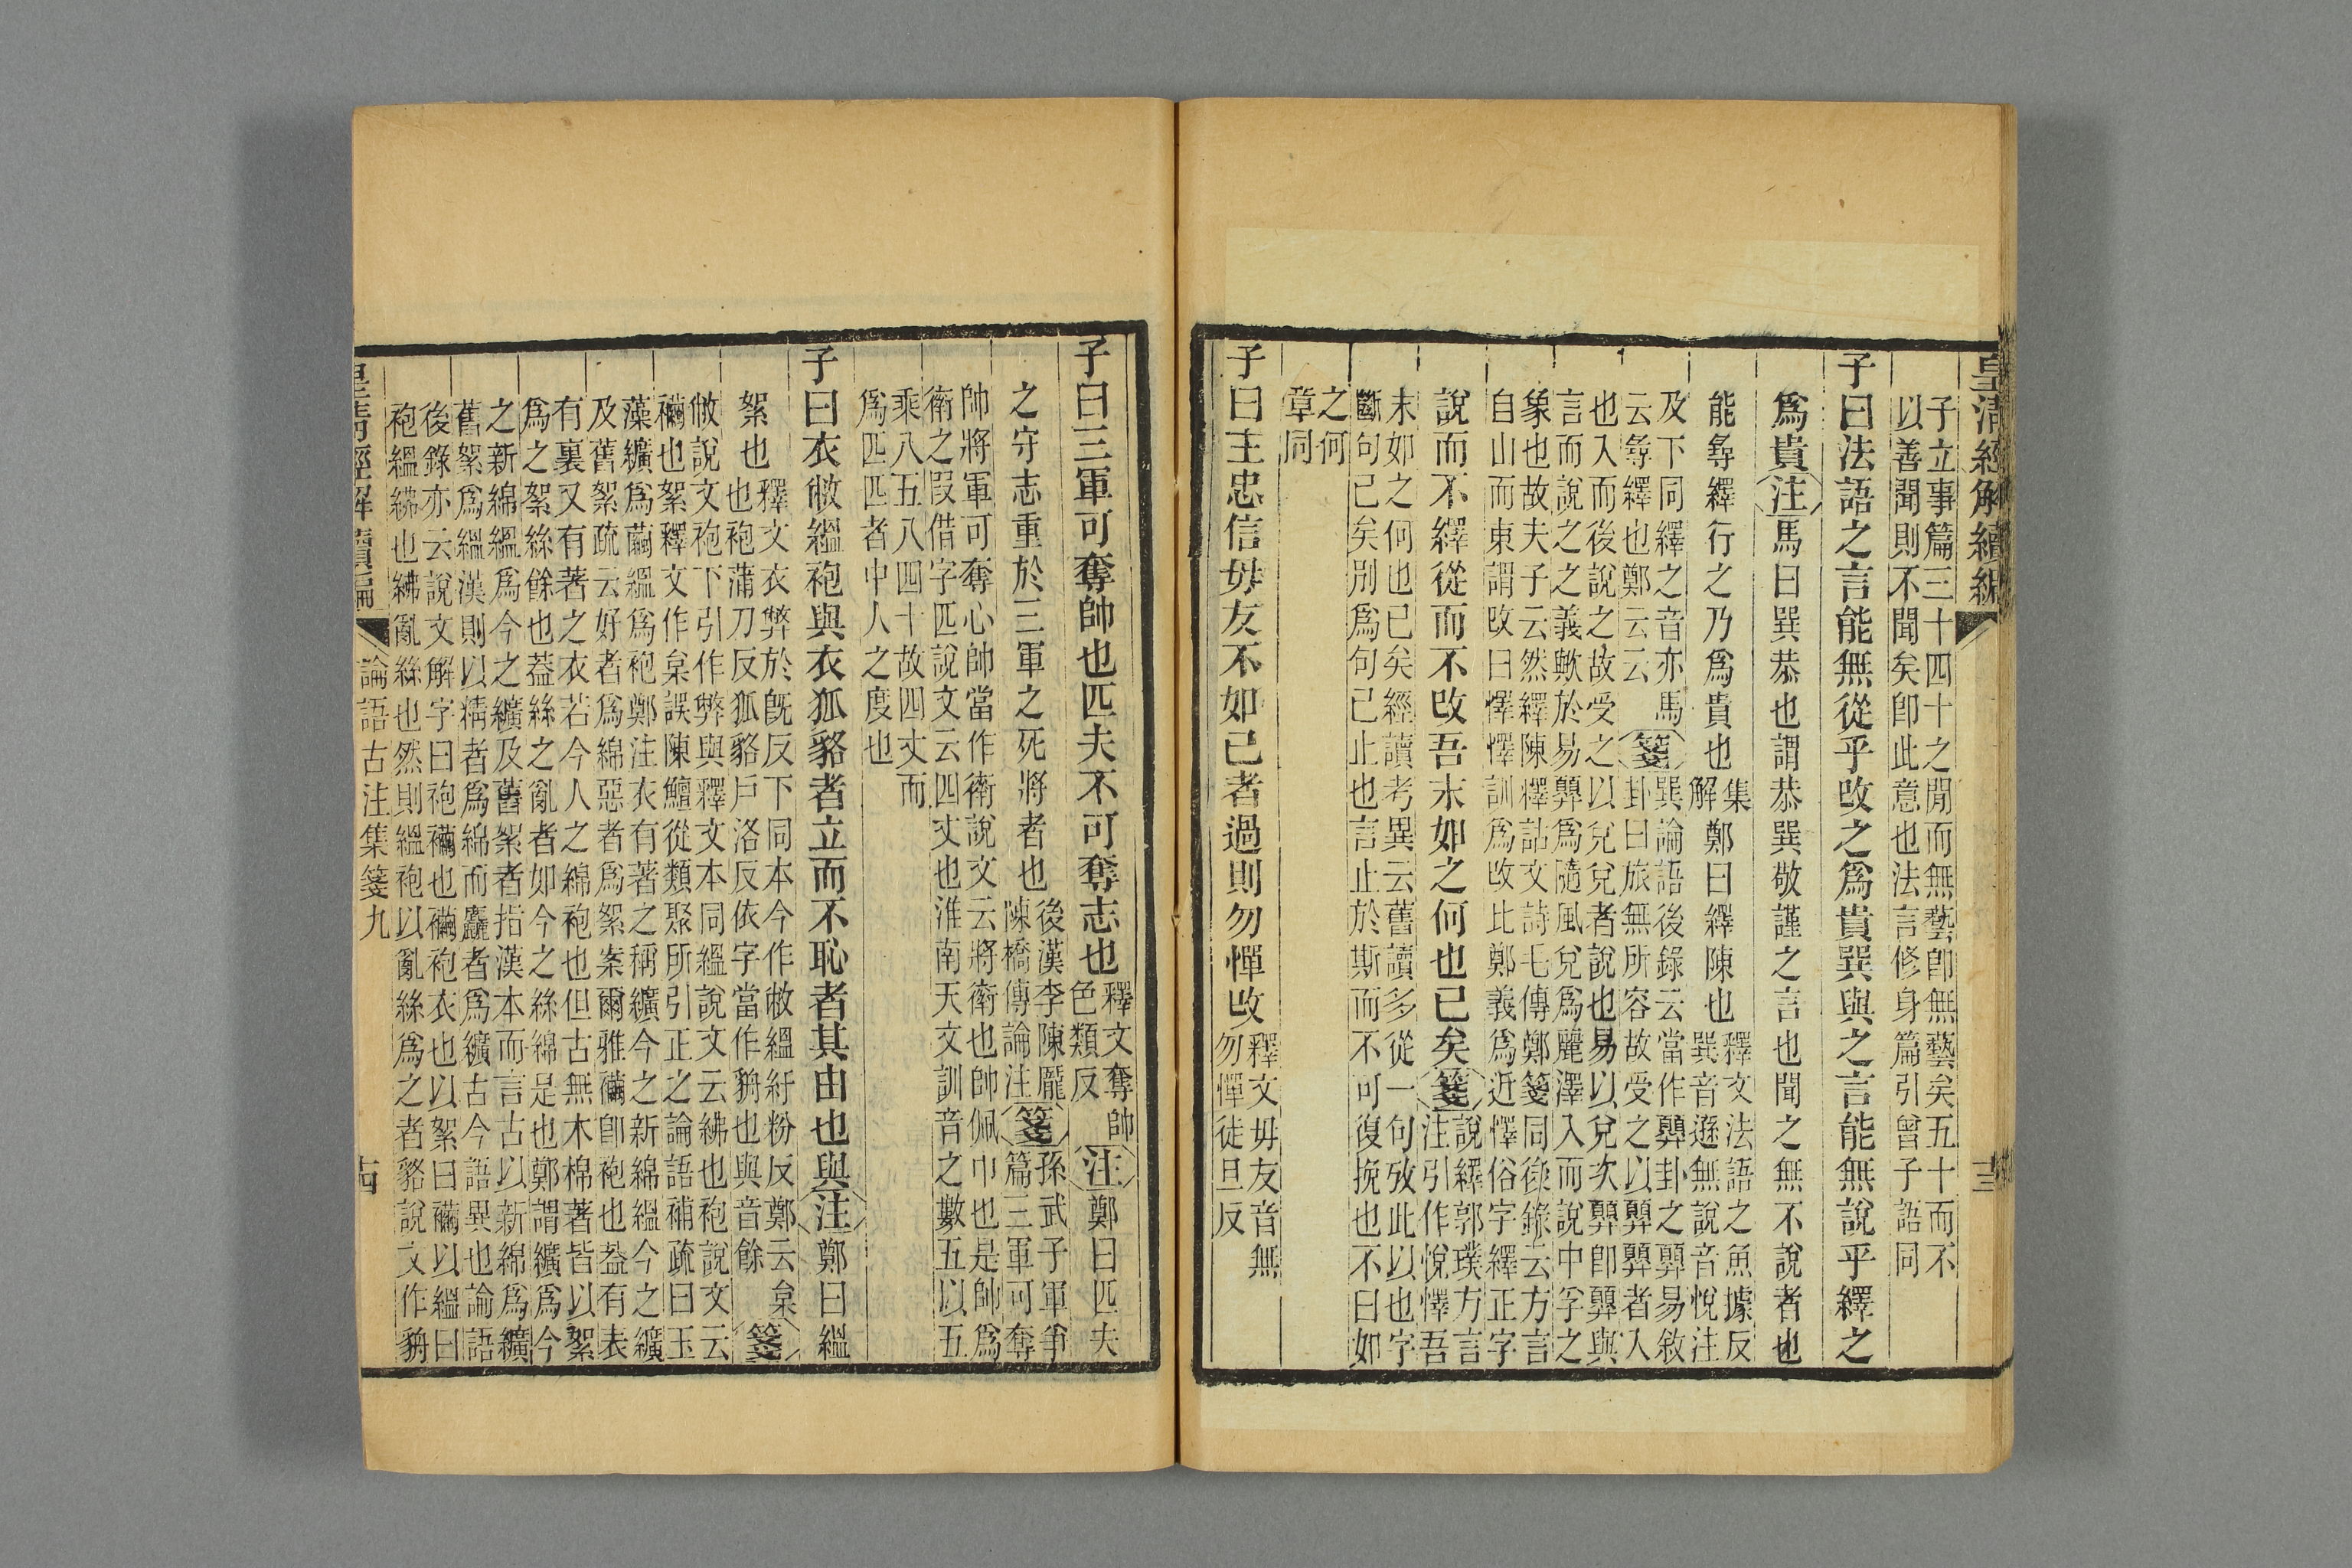 皇清經解續編
三
子立事篇三十四十之閒而無藝卽無藝矣五十而不
以善聞則不聞矣卽此意也法言修身篇引曾子語同
子曰法語之言能無從乎改之爲貴巽與之言能無說乎繹之
爲貴注馬曰巽恭也謂恭巽敬謹之言也聞之無不說者也
能尋繹行之乃爲貴也集解鄭曰繹陳也釋文法語之魚據反巽音遜無說音悅注
及下同繹之音亦馬云尋繹也鄭云云箋巽論語後錄云當作顨卦之顨易敘卦曰旅無所容故受之以顨顨者入
也入而後說之故受之以兌兌者說也易以兌次顨卽顨與
言而說之之義歟於易顨爲隨風兌爲麗澤入而說中孚之
象也故夫子云然繹陳釋詁文詩毛傳鄭箋同後錄云方言
自山而東謂改曰懌懌訓爲改比鄭義爲近懌俗字繹正字
說而不繹從而不改吾末如之何也已矣箋說繹郭璞方言注引作悅懌吾
末如之何也已矣經讀考異云舊讀多從一句攷此以也字
斷句已矣別爲句已止也言止於斯而不可復挽也不曰如
之何
章同
子曰主忠信毋友不如己者過則勿憚改釋文毋友音無勿憚徒旦反
子曰三軍可奪帥也匹夫不可奪志也釋文奪帥色類反注鄭曰匹夫
之守志重於三軍之死將者也後漢李陳龐陳橋傳論注箋孫武子軍爭篇三軍可奪
帥將軍可奪心帥當作衛說文云將衛也帥佩巾也是帥爲
衛之叚借字匹說文云四丈也淮南天文訓音之數五以五
乘八五八四十故四丈而
爲匹匹者中人之度也
子曰衣敝縕袍與衣狐貉者立而不恥者其由也與注鄭曰縕
絮也釋文衣弊於旣反下同本今作敝縕紆粉反鄭云枲也袍蒲刀反狐貉戶洛反依字當作貈也與音餘箋
敝說文袍下引作弊與釋文本同縕說文云紼也袍說文云
襺也絮釋文作枲誤陳鱣從類聚所引正之論語補疏曰玉
藻纊爲繭縕爲袍鄭注衣有著之稱纊今之新綿縕今之纊
及舊絮疏云好者爲綿惡者爲絮案爾雅襺卽袍也葢有表
有裏又有著之衣若今人之綿袍也但古無木棉著皆以絮
爲之絮絲餘也葢絲之亂者如今之絲綿是也鄭謂纊爲今
之新綿縕爲今之纊及舊絮者指漢本而言古以新綿爲纊
舊絮爲縕漢則以精者爲綿而麤者爲纊古今語異也論語
後錄亦云說文解字曰袍襺也襺袍衣也以絮曰襺以縕曰
袍縕紼也紼亂絲也然則縕袍以亂絲爲之者貉說文作貈
皇清經解續編
論語古注集箋九
古